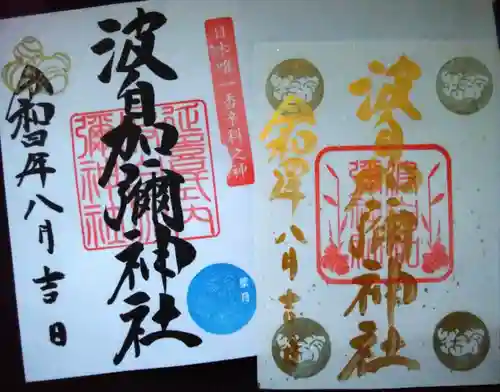 日本唯一香辛料之神
波自加彌神社
延喜式内
彌神社
令和四年八月吉日
波自加彌神社
令和四年八月吉日